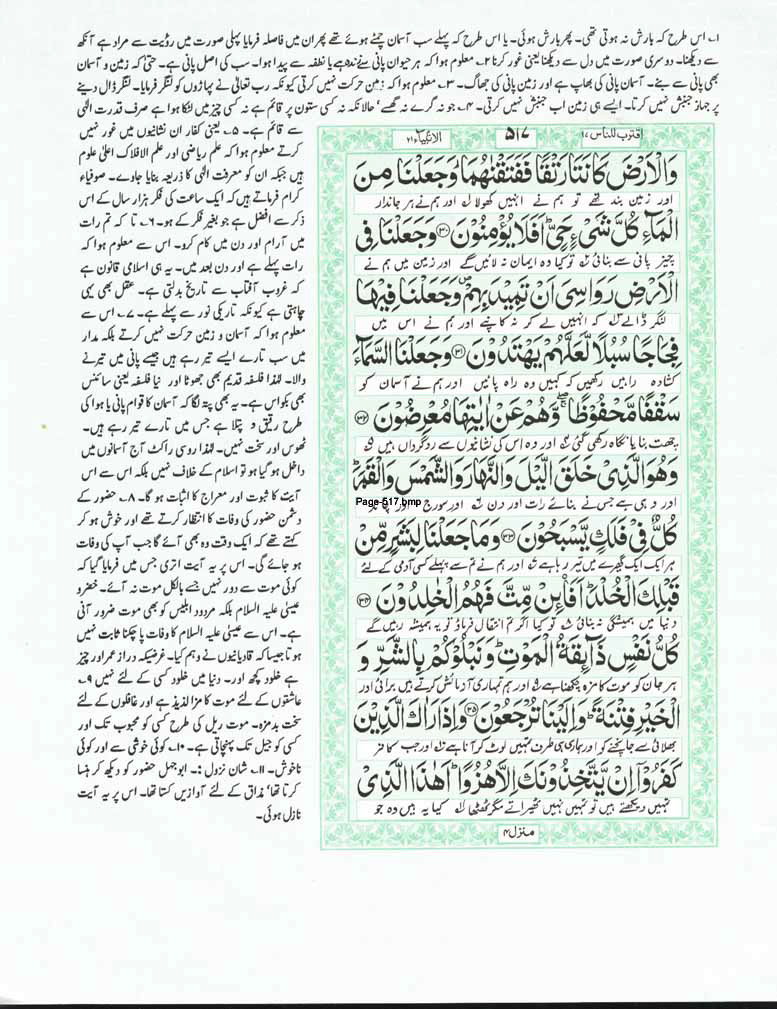 ۱۔ اس طرح کہ بارش نہ ہوتی تھی۔ پھر بارش ہوئی۔ یا اس طرح کہ پہلے سب آسمان چمٹے ہوئے تھے پھر ان میں فاصلہ فرمایا پہلی صورت میں رؤیت سے مراد ہے آنکھ
سے دیکھنا۔ دوسری صورت میں دل سے دیکھنا یعنی غور کرنا ۲۔ معلوم ہوا کہ ہر حیوان پانی نے زندہ ہے یا نطفہ سے پیدا ہوا۔ سب کی اصل پانی ہے۔ حتیٰ کہ زمین و آسمان
بھی پانی سے بنے۔ آسمان پانی کی بھاپ ہے اور زمین پانی کی جھاگ۔ ۳۔ معلوم ہوا کہ زمین حرکت نہیں کرتی کیونکہ رب تعالیٰ نے پہاڑوں کو لنگر فرمایا۔ لنگر ڈال دینے
پر جہاز جنبش نہیں کرتا۔ ایسے ہی زمین اب جنبش نہیں کرتی۔ ۴۔ جو نہ گرے نہ گھسے' حالانکہ نہ کسی ستون پر قائم ہے نہ کسی چیز میں لٹکا ہوا ہے صرف قدرت الٰہی
سے قائم ہے۔ ۵۔ یعنی کفار ان نشانیوں میں غور نہیں
کرتے معلوم ہوا کہ علم ریاضی اور علم الافلاک اعلیٰ علوم
ہیں جبکہ ان کو معرفت الٰہی کا ذریعہ بنایا جاوے۔ صوفیاء
کرام فرماتے ہیں کہ ایک ساعت کی فکر ہزار سال کے اس
ذکر سے افضل ہے جو بغیر فکر کے ہو۔ ۶۔ تا کہ تم رات
میں آرام اور دن میں کام کرو۔ اس سے معلوم ہوا کہ
رات پہلے ہے اور دن بعد میں۔ یہ ہی اسلامی قانون ہے
کہ غروب آفتاب سے تاریخ بدلتی ہے۔ عقل بھی یہی
چاہتی ہے کیونکہ تاریکی نور سے پہلے ہے۔ ۷۔ اس سے
معلوم ہوا کہ آسمان و زمین حرکت نہیں کرتے بلکہ مدار
میں سب تارے ایسے تیر رہے ہیں جیسے پانی میں تیرنے
والا۔ لہٰذا فلسفہ قدیم بھی جھوٹا اور نیا فلسفہ یعنی سائنس
بھی بکواس ہے۔ یہ بھی پتہ لگا کہ آسمان کا قوام پانی یا ہوا کی
طرح رقیق و پتلا ہے جس میں تارے تیر رہے ہیں۔
ٹھوس اور سخت نہیں۔ لہٰذا روسی راکٹ آج آسمانوں میں
داخل ہو گیا ہو تو اسلام کے خلاف نہیں بلکہ اس سے اس
آیت کا ثبوت اور معراج کا اثبات ہو گا۔ ۸۔ حضور کے
دشمن حضور کی وفات کا انتظار کرتے تھے اور خوش ہو کر
کہتے تھے کہ ایک وقت وہ بھی آئے گا جب آپ کی وفات
ہو جائے گی۔ اس پر یہ آیت اتری جس میں فرمایا گیا کہ
کوئی موت سے دور نہیں جسے بالکل موت نہ آئے۔ خضر و
عیسیٰ علیہ السلام بلکہ مردود ابلیس کو بھی موت ضرور آنی
ہے۔ اس سے عیسیٰ علیہ السلام کا وفات پا چکنا ثابت نہیں
ہوتا جیسا کہ قادیانیوں نے وہم کیا۔ غرضیکہ دراز عمر اور چیز
ہے خلود کچھ اور۔ دنیا میں خلود کسی کے لئے نہیں ۹۔
عاشقوں کے لئے موت کا مزا لذیذ ہے اور غافلوں کے لئے
سخت بدمزہ۔ موت ریل کی طرح کسی کو محبوب تک اور
کسی کو جیل تک پہنچاتی ہے۔ ۱۰۔ کوئی خوشی سے اور کوئی
ناخوش۔ ۱۱۔ شان نزول :۔ ابوجہل حضور کو دیکھ کر ہنسا
کرتا تھا' مذاق کے لئے آوازیں کستا تھا۔ اس پر یہ آیت
نازل ہوئی۔
اقترب للناس ۱۷
۵۱۷
الانبیاء ۲۱
وَالْاَرْضَ كَانَتَا رَتْقًا فَفَتَقْنٰهُمَا ؕ وَجَعَلْنَا مِنَ
اور زمین بند تھے تو ہم نے انہیں کھولا اور ہم نے ہر جاندار
الْمَآءِ كُلَّ شَیْءٍ حَیٍّ ؕ اَفَلَا یُؤْمِنُوْنَ ﴿۳۰﴾ وَجَعَلْنَا فِی
چیز پانی سے بنائی تو کیا وہ ایمان نہ لائیں گے اور زمین میں ہم نے
الْاَرْضِ رَوَاسِیَ اَنْ تَمِیْدَ بِهِمْ ۪ وَجَعَلْنَا فِیْهَا
لنگر ڈالے کہ انہیں لے کر نہ کانپے اور ہم نے اس میں
فِجَاجًا سُبُلًا لَّعَلَّهُمْ یَهْتَدُوْنَ ﴿۳۱﴾ وَجَعَلْنَا السَّمَآءَ
کشادہ راہیں رکھیں کہ کہیں وہ راہ پائیں اور ہم نے آسمان کو
سَقْفًا مَّحْفُوْظًا ۖۚ وَّهُمْ عَنْ اٰیٰتِهَا مُعْرِضُوْنَ ﴿۳۲﴾
چھت بنایا نگاہ رکھی گئی اور وہ اس کی نشانیوں سے روگرداں ہیں
وَهُوَ الَّذِیْ خَلَقَ الَّیْلَ وَالنَّهَارَ وَالشَّمْسَ وَالْقَمَرَ ؕ
اور وہی ہے جس نے بنائے رات اور دن اور سورج اور
Page-517.bmp
كُلٌّ فِیْ فَلَكٍ یَّسْبَحُوْنَ ﴿۳۳﴾ وَمَا جَعَلْنَا لِبَشَرٍ مِّنْ
ہر ایک ایک گھیرے میں تیر رہا ہے اور ہم نے تم سے پہلے کسی آدمی کے لئے
قَبْلِكَ الْخُلْدَ ؕ اَفَا۟ئِنْ مِّتَّ فَهُمُ الْخٰلِدُوْنَ ﴿۳۴﴾
دنیا میں ہمیشگی نہ بنائی تو کیا اگر تم انتقال فرماؤ تو یہ ہمیشہ رہیں گے
كُلُّ نَفْسٍ ذَآىِٕقَةُ الْمَوْتِ ؕ وَنَبْلُوْكُمْ بِالشَّرِّ وَ
ہر جان کو موت کا مزہ چکھنا ہے اور ہم تمہاری آزمائش کرتے ہیں برائی اور
الْخَیْرِ فِتْنَةً ؕ وَاِلَیْنَا تُرْجَعُوْنَ ﴿۳۵﴾ وَاِذَا رَاٰكَ الَّذِیْنَ
بھلائی سے جانچنے کو اور ہماری ہی طرف تمہیں لوٹ کر آنا ہے اور جب کافر
كَفَرُوْۤا اِنْ یَّتَّخِذُوْنَكَ اِلَّا هُزُوًا ؕ اَهٰذَا الَّذِیْ
تمہیں دیکھتے ہیں تو تمہیں نہیں ٹھہراتے مگر ٹھٹھا کیا یہ ہیں وہ جو
منزل ۴